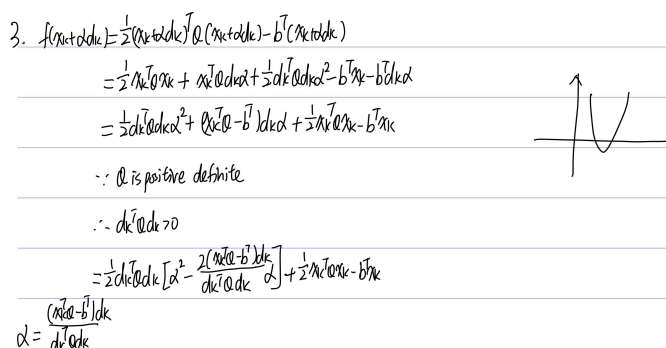 3. f(xk+αdk)=½(xk+αdk)ᵀQ(xk+αdk)-bᵀ(xk+αdk)
=½xkᵀQxk + xkᵀQdkα+½dkᵀQdkα²-bᵀxk-bᵀdkα
=½dkᵀQdkα²+(xkᵀQ-bᵀ)dkα+½xkᵀQxk-bᵀxk
∵ Q is positive definite
∴ dkᵀQdk>0
=½dkᵀQdk[α²-2(xkᵀQ-bᵀ)dk/dkᵀQdk α]+½xkᵀQxk-bᵀxk
α=(xkᵀQ-bᵀ)dk/dkᵀQdk